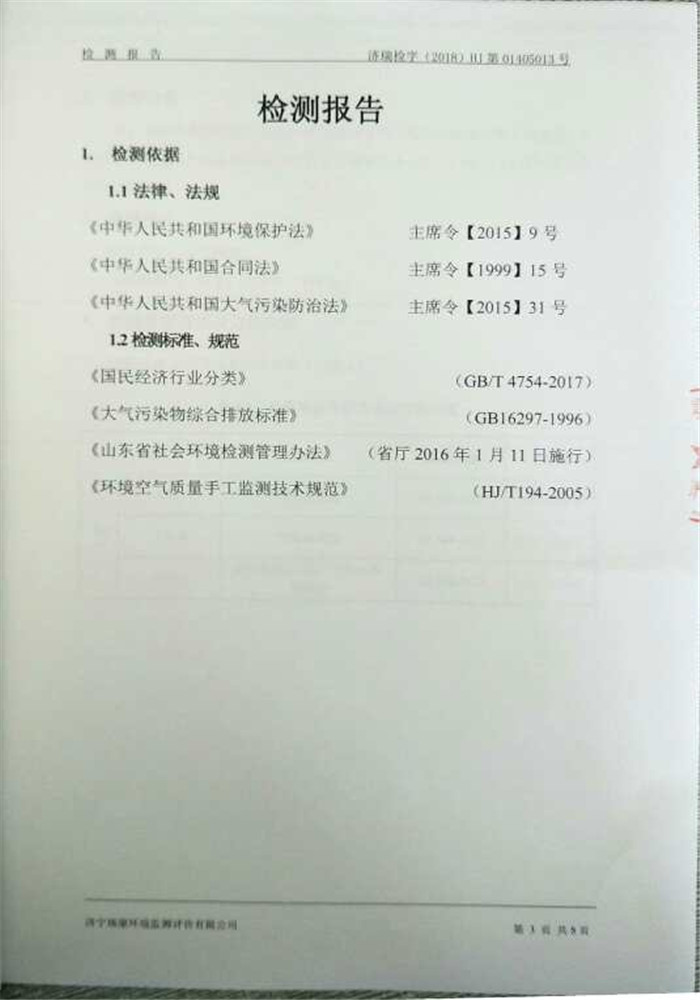 检测报告 济瑞检字（2018）HJ 第 01405013 号
检测报告
1. 检测依据
1.1 法律、法规
《中华人民共和国环境保护法》 主席令【2015】9 号
《中华人民共和国合同法》 主席令【1999】15 号
《中华人民共和国大气污染防治法》 主席令【2015】31 号
1.2 检测标准、规范
《国民经济行业分类》 （GB/T 4754-2017）
《大气污染物综合排放标准》 （GB16297-1996）
《山东省社会环境检测管理办法》 （省厅 2016 年 1 月 11 日施行）
《环境空气质量手工监测技术规范》 （HJ/T194-2005）
环境监测评价有限公司 第 页 共 页